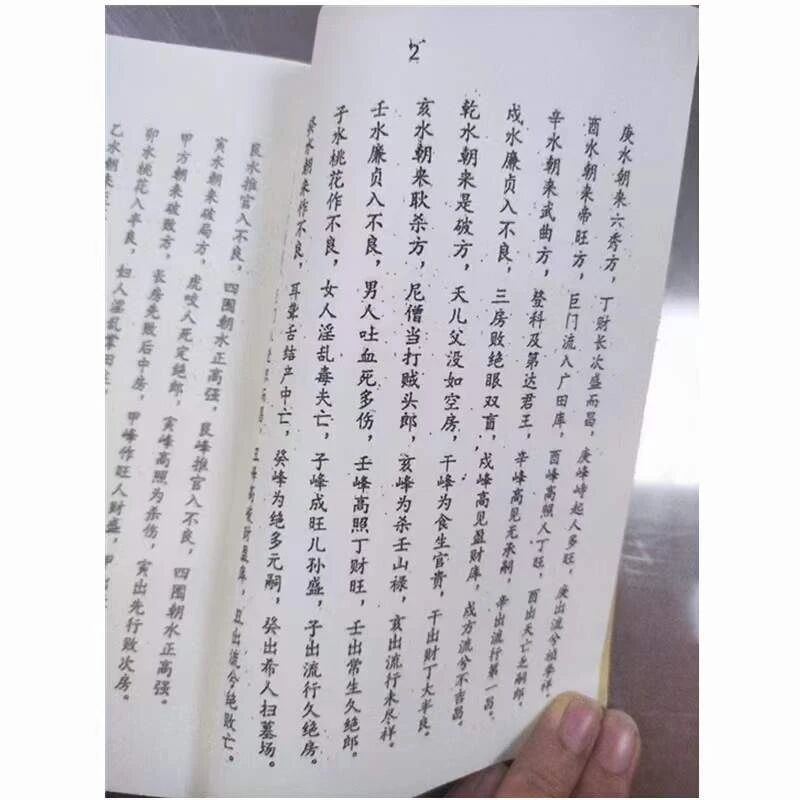 2
庚水朝来六秀方，丁财长次盛而昌，庚峰峙起人多旺，庚出流兮祯孝祥。
酉水朝来帝旺方，巨门流入广田库，酉峰高照人丁旺，酉出夭亡乏嗣郎。
辛水朝来武曲方，登科及第达君王，辛峰高见无承嗣，辛出流行第一昌。
戌水廉贞入不良，三房败绝眼双盲，戌峰高见盈财库，戌方流兮不吉昌。
乾水朝来是破方，夭儿父没如空房，干峰为食生官贵，干出财丁大半良。
亥水朝来耿杀方，尼僧当打贼头郎，亥峰为杀壬山禄，亥出流行未尽祥。
壬水廉贞入不良，男人吐血死多伤，壬峰高照丁财旺，壬出常生久绝郎。
子水桃花作不良，女人淫乱毒夫亡，子峰成旺儿孙盛，子出流行久绝房。
癸水朝来作不良，耳聋舌结产中亡，癸峰为绝多元嗣，癸出希人扫墓场。
丑出流兮绝败亡。
艮水推官入不良，四围朝水正高强，艮峰推官入不良，四围朝水正高强。
寅水朝来破局方，虎咬人死定绝郎，寅峰高照为杀伤，寅出先行败次房。
甲方朝来破败方，长房先败后中房，甲峰作旺人财盛，
卯水桃花入半良，妇人淫乱
乙水朝来